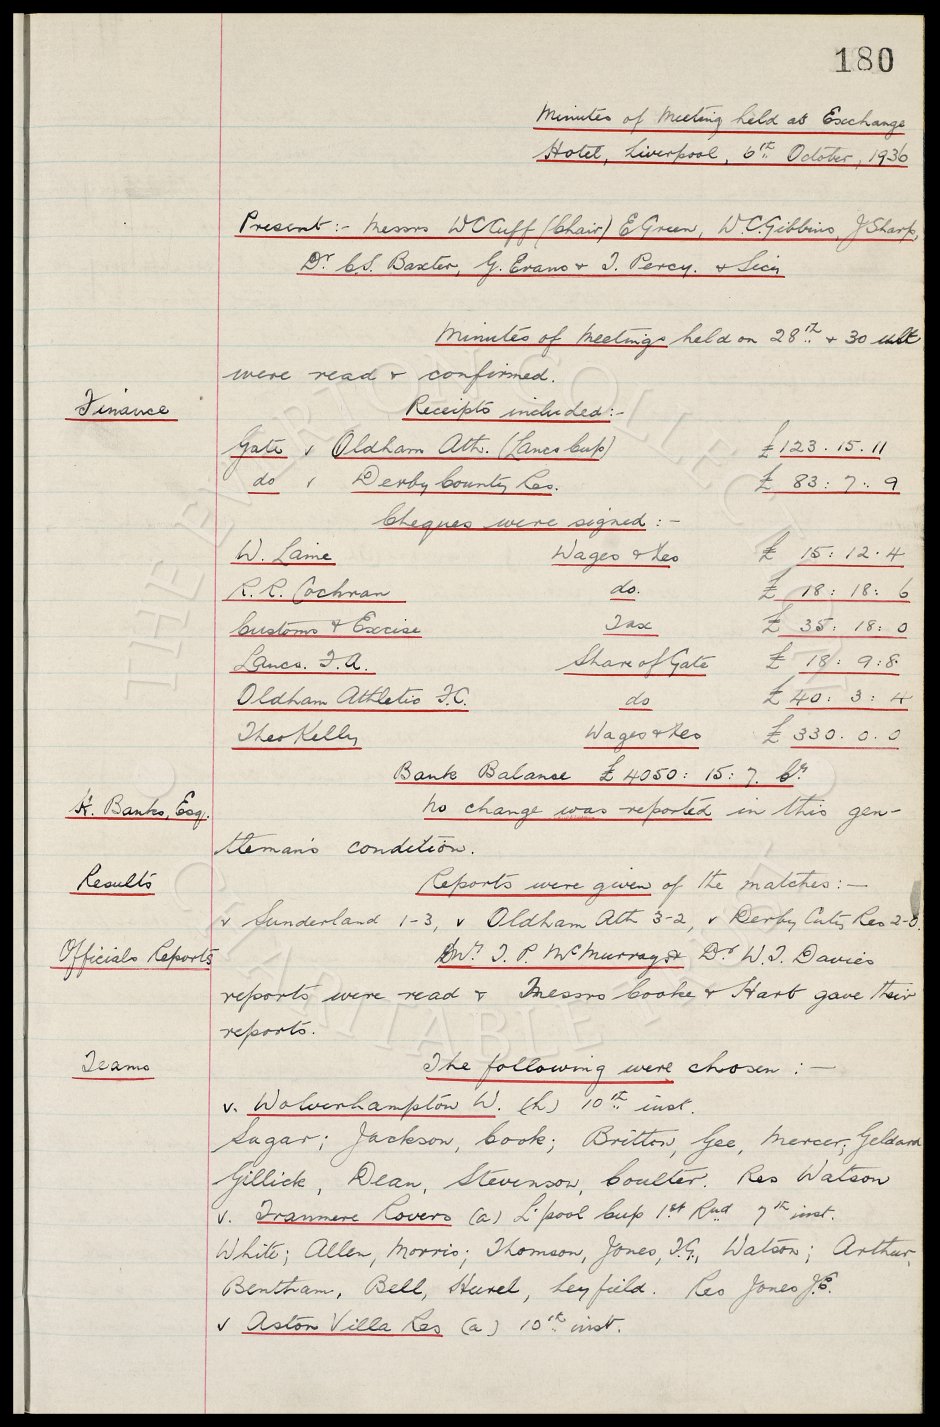 180
Minutes of Meeting held at Exchange
Hotel, Liverpool, 6th October, 1936
Present :- Messrs W C Cuff (Chair) E Green, W.C. Gibbins, J Sharp,
Dr C.S. Baxter, G. Evans & T. Percy. & Secy
Minutes of Meetings held on 28th & 30 ult
were read & confirmed.
Finance Receipts included:-
Gate v Oldham Ath. (Lancs Cup) £123. 15. 11
do v Derby County Res. £ 83: 7: 9
Cheques were signed :-
W. Laine Wages & Xes £ 15: 12. 4
R. R. Cochran do. £ 18: 18: 6
Customs & Excise Tax £ 35: 18: 0
Lancs. F.A. Share of Gate £ 18: 9: 8
Oldham Athletic F.C. do £ 40: 3: 4
Theo Kelly Wages & Xes £ 330. 0. 0
Bank Balance £ 4050: 15: 7. Cr.
H. Banks, Esq. No change was reported in this gen-
tleman's condition.
Results Reports were given of the matches: -
v Sunderland 1-3, v Oldham Ath 3-2, v Derby Cnty Res 2-0.
Officials Reports Mr. T. P. McMurray & Dr W. T. Davies
reports were read & Messrs Cooke & Hart gave their
reports.
Teams The following were chosen : -
v. Wolverhampton W. (h) 10th inst.
Sagar; Jackson, Cook; Britton, Gee, Mercer; Geldard
Gillick, Dean, Stevenson, Coulter. Res Watson
v. Tranmere Rovers (a) L'pool Cup 1st Rnd 7th inst.
White; Allen, Morris; Thomson, Jones, T.G., Watson; Arthur,
Bentham, Bell, Hurel, Leyfield. Res Jones J.E.
v Aston Villa Res (a) 10th inst.
THE EVERTON COLLECTION
CHARITABLE TRUST